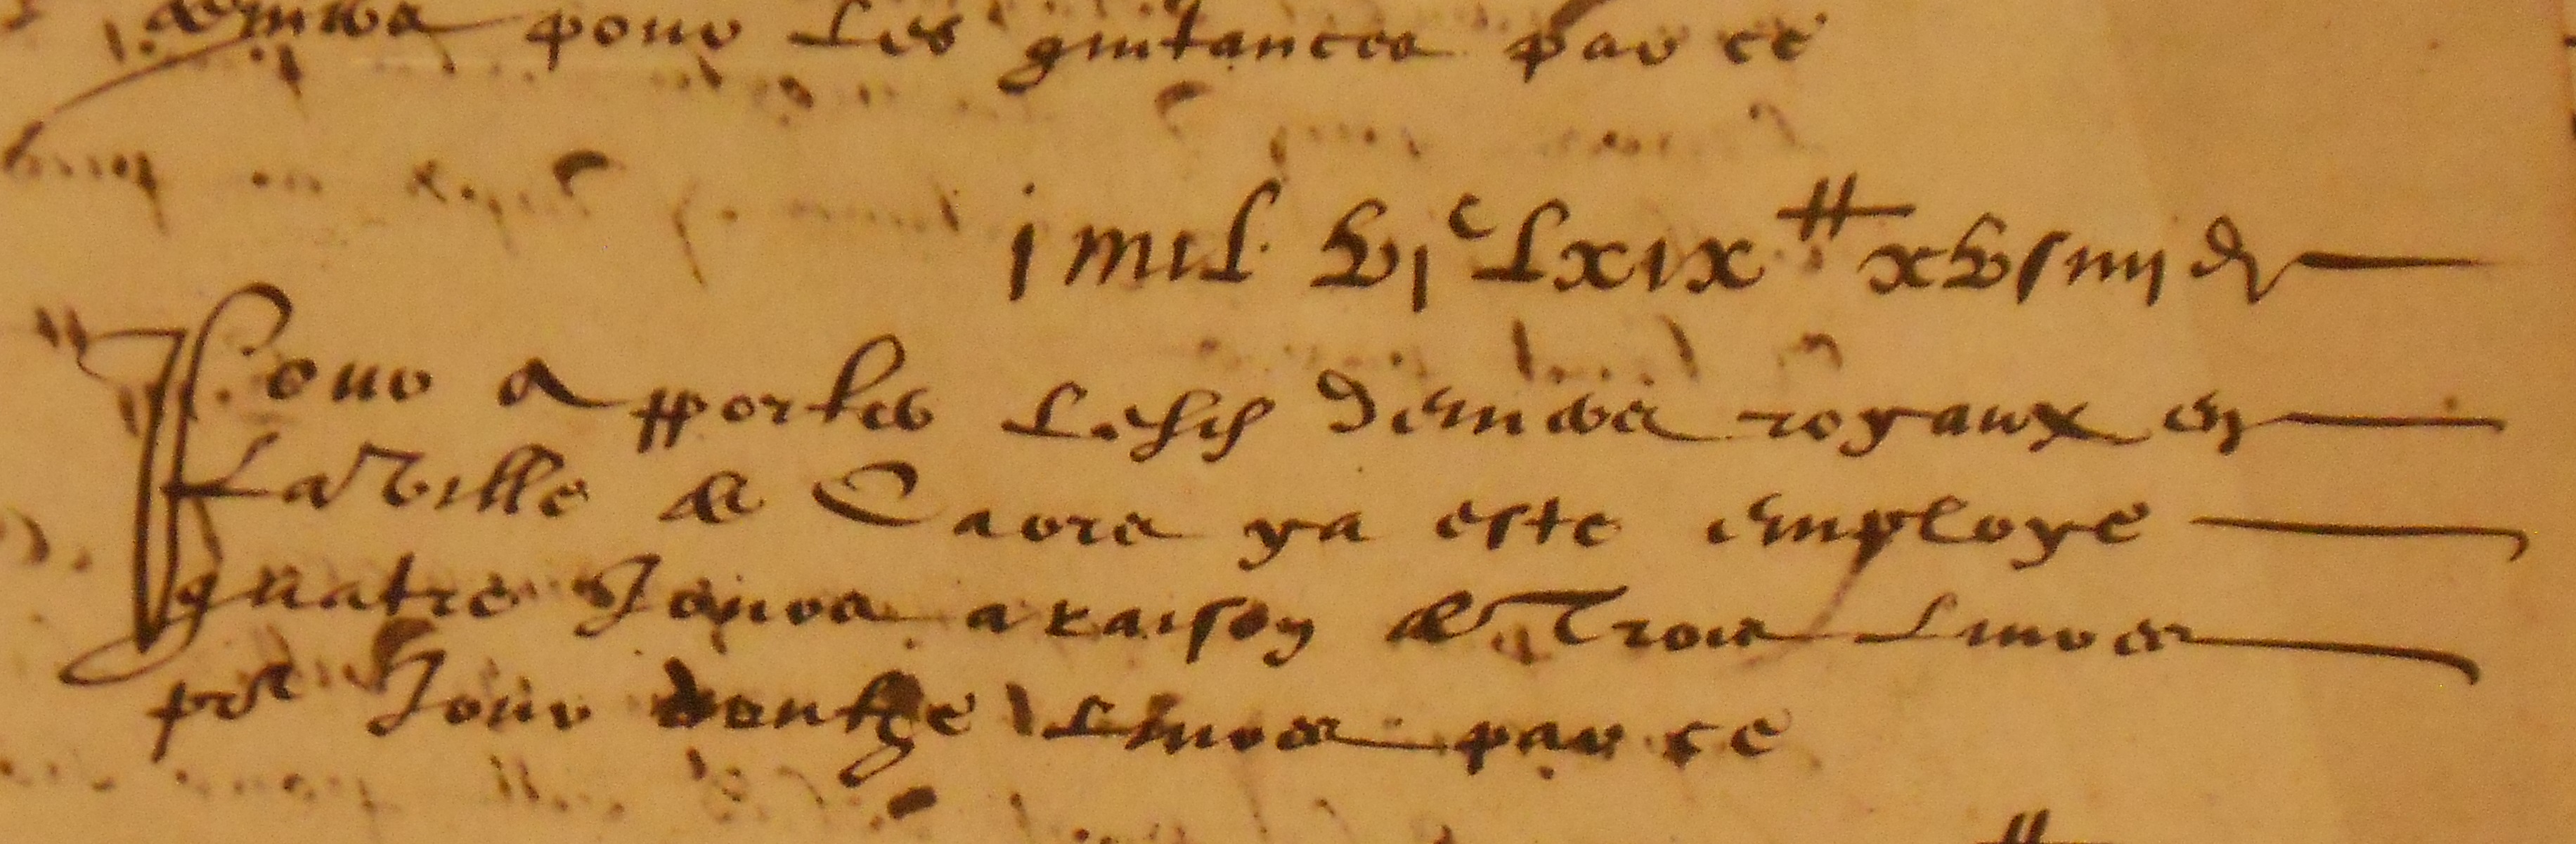 deniers pour les quitances par ce
j mil vjᶜ Lxix ₶ xv s iiij d
Pour apporter lesd deniers royaux en
La ville de Caors ya este employe
quatre Jours a raison de Trois Livres
pʳ Jour doutze Livres par ce